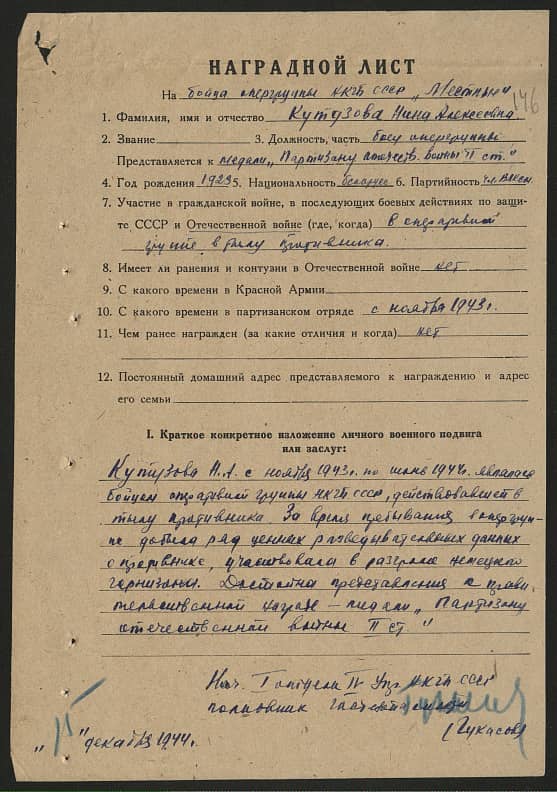 146
НАГРАДНОЙ ЛИСТ
На бойца опергруппы НКГБ СССР „Местные"
1. Фамилия, имя и отчество Кутузова Нина Алексеевна
2. Звание 3. Должность, часть боец опергруппы
Представляется к медали „Партизану отечеств. войны II ст."
4. Год рождения 1923 5. Национальность 6. Партийность чл. ВЛКСМ
7. Участие в гражданской войне, в последующих боевых действиях по защи-
те СССР и Отечественной войне (где, когда) в оперативной
группе в тылу противника.
8. Имеет ли ранения и контузии в Отечественной войне нет
9. С какого времени в Красной Армии
10. С какого времени в партизанском отряде с ноября 1943 г.
11. Чем ранее награжден (за какие отличия и когда) нет
12. Постоянный домашний адрес представляемого к награждению и адрес
его семьи
I. Краткое конкретное изложение личного военного подвига
или заслуг:
Кутузова Н.А. с ноября 1943 г. по июнь 1944 г. являлась
бойцом оперативной группы НКГБ СССР, действовавшей в
тылу противника. За время пребывания в опергруп-
пе добыла ряд ценных разведывательных данных
о противнике, участвовала в разгроме немецкого
гарнизона. Достойна представления к прави-
тельственной награде – медали „Партизану
отечественной войны II ст."
Нач. I отдела IV Упр. НКГБ СССР
полковник госбезопасности
(Гукасов)
„15" декабря 1944 г.